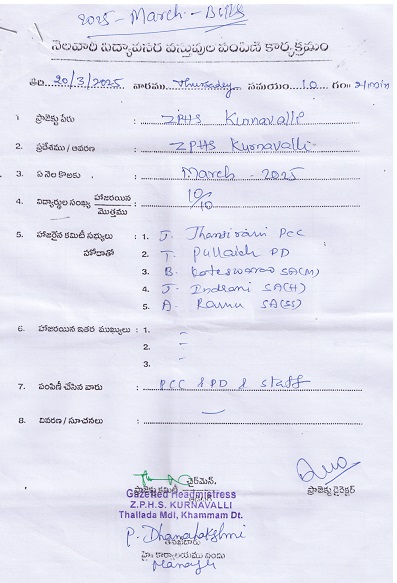 2025 - March - Bills
నెలవారి విద్యావసర వస్తువుల పంపిణి కార్యక్రమం
తేది. 20/3/2025 వారము Thursday సమయం. 10 గం॥ 21min
1. ప్రాజెక్టు పేరు : ZPHS Kurnavalli
2. ప్రదేశము / ఆవరణ : ZPHS Kurnavalli
3. ఏ నెల కొరకు : March - 2025
4. విద్యార్థుల సంఖ్య హాజరయిన / మొత్తము : 10/10
5. హాజరైన కమిటి సభ్యులు : 1. J. Jhansi rani PCC
హోదాతో 2. T. Pullaiah PD
3. B. Koteswarao SA(M)
4. J. Indrani SA(H)
5. A. Ramu SA(SS)
6. హాజరయిన ఇతర ముఖ్యులు : 1. -
2. -
3. -
7. పంపిణీ చేసిన వారు : PCC & PD & staff
8. వివరణ / సూచనలు : -
ఛైర్‌మెన్.
ప్రాజెక్టు కమిటి
ప్రాజెక్టు డైరెక్టర్
Gazetted Headmistress
Z.P.H.S. KURNAVALLI
Thallada Mdl, Khammam Dt.
P. Dhanalakshmi